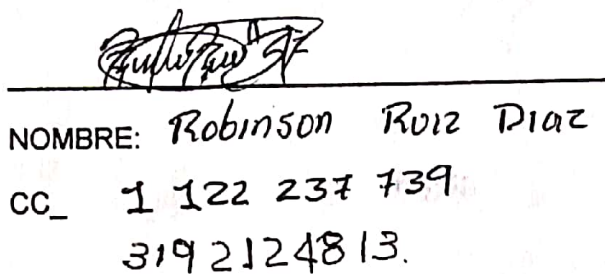 NOMBRE: Robinson Ruiz Diaz
CC_ 1 122 237 739
3192124813.